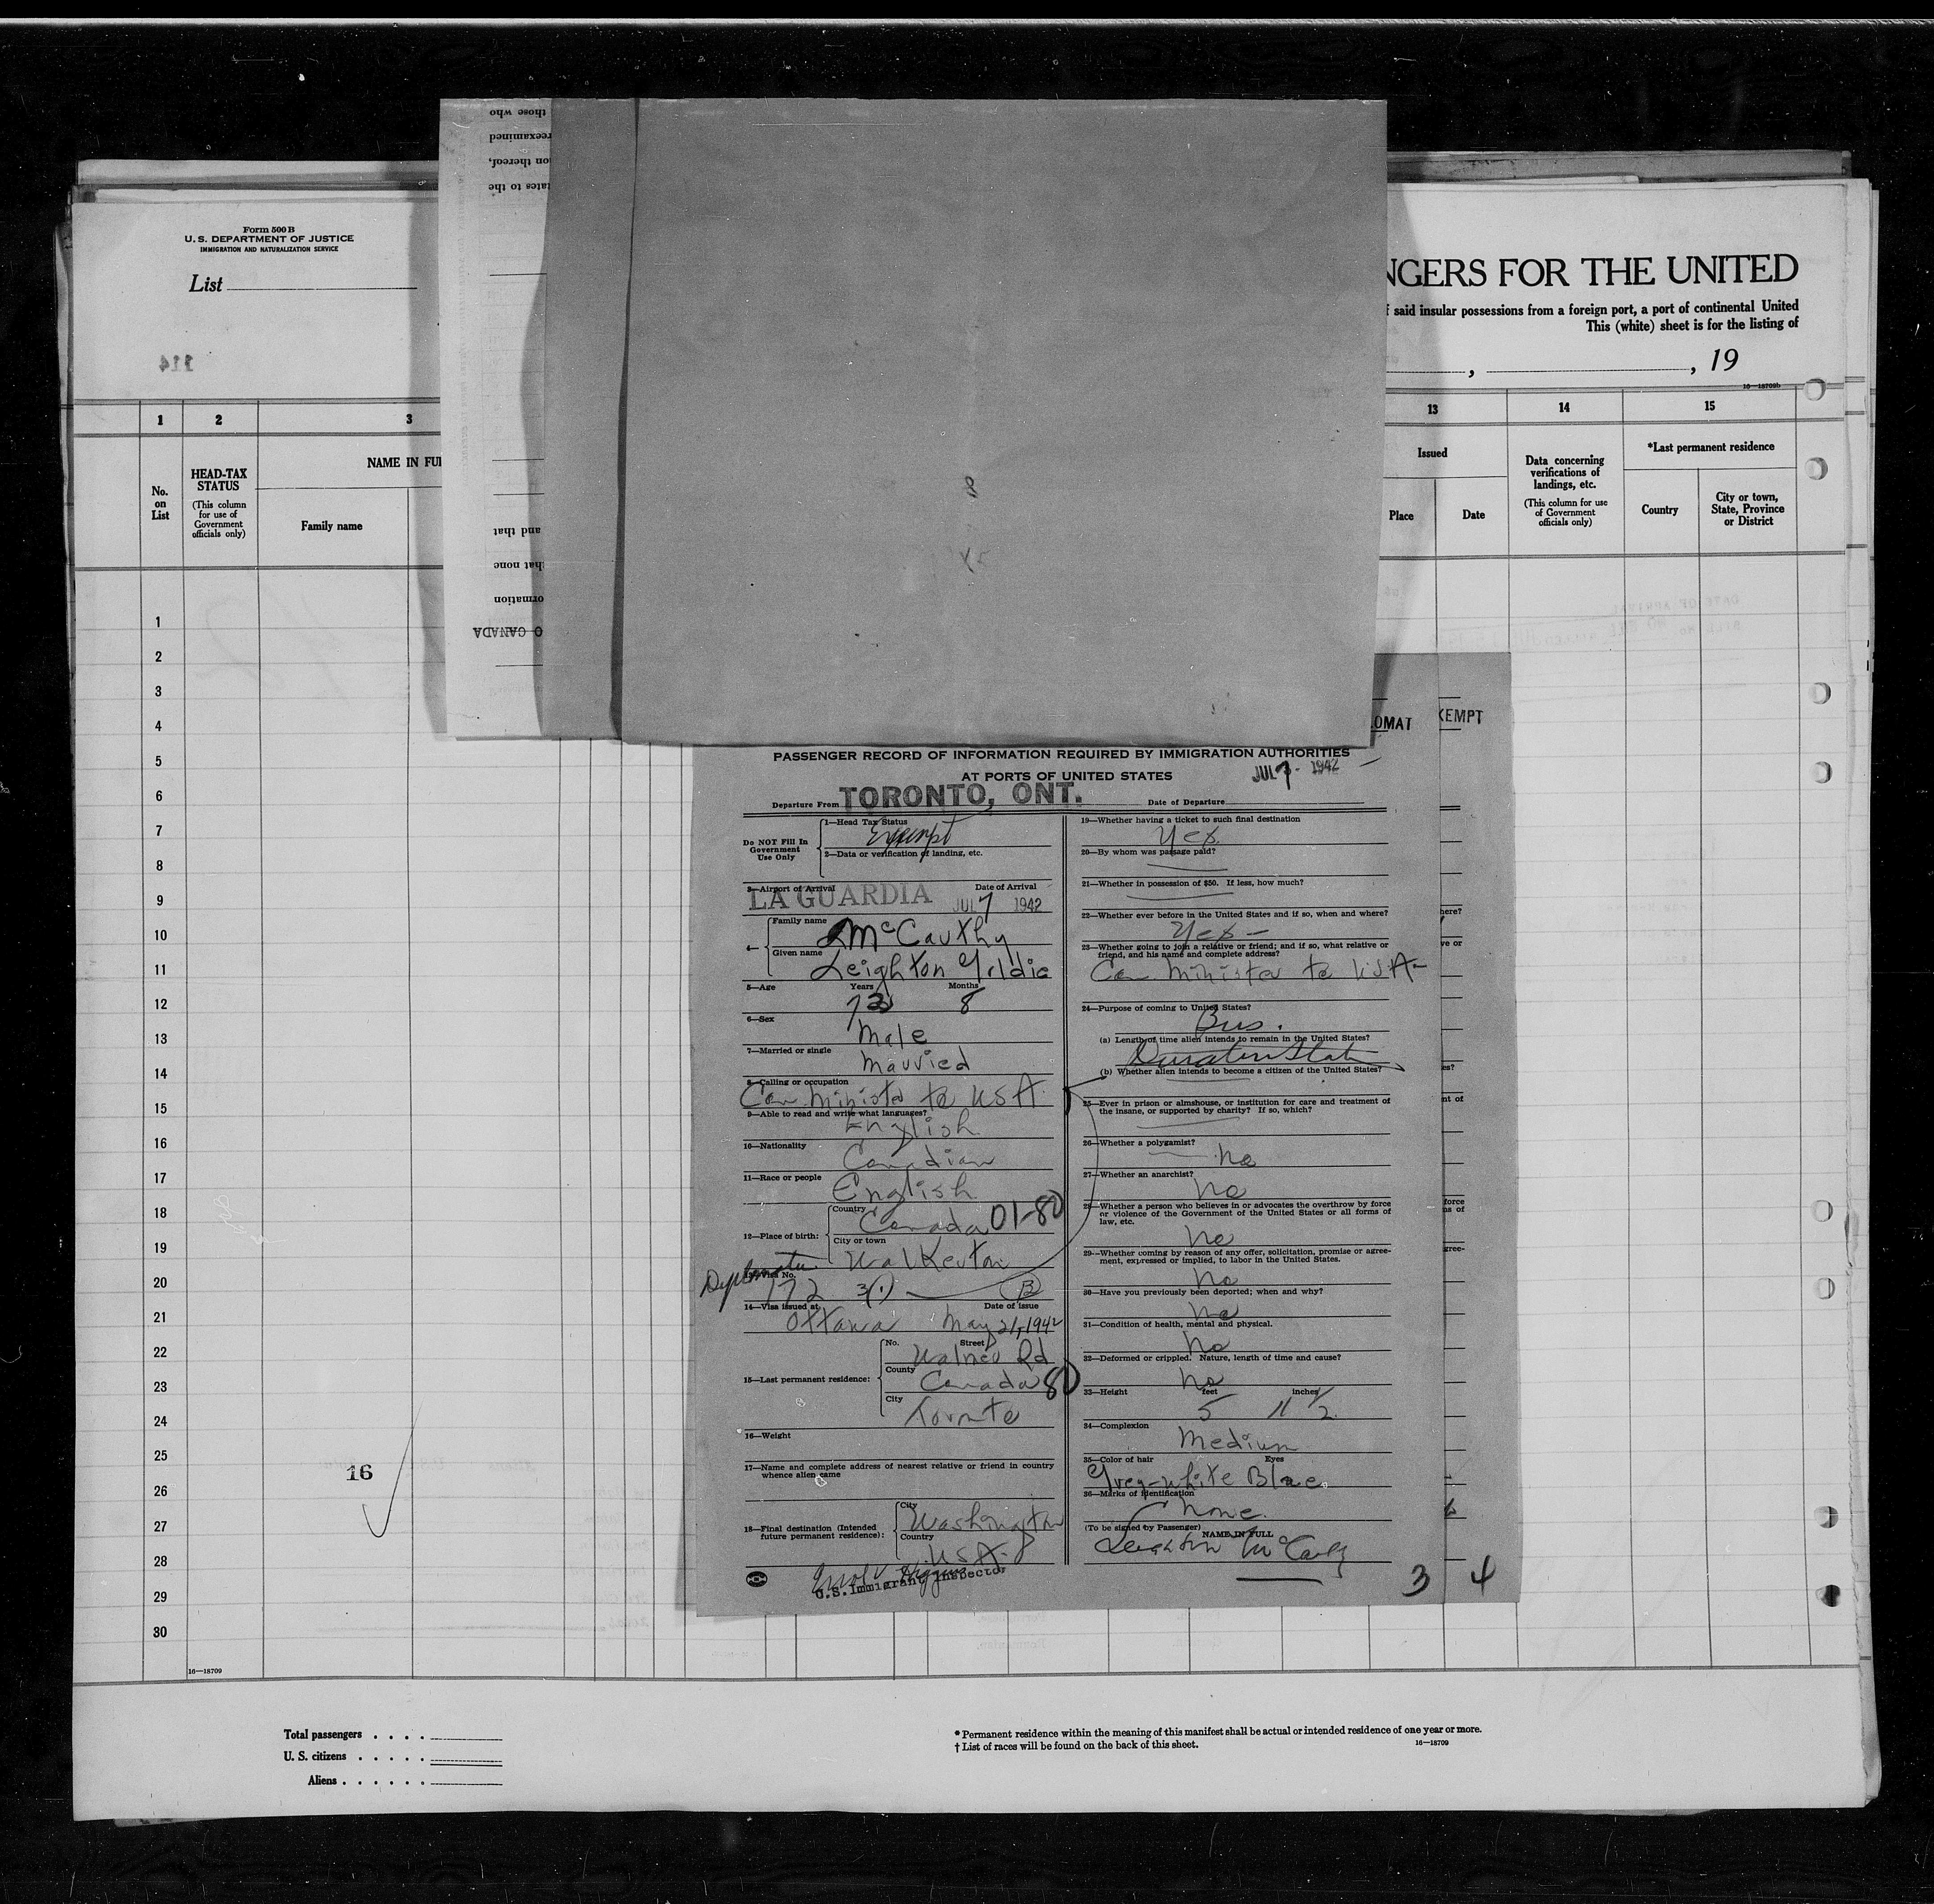 those who
reexamined
on thereof,
tates to the
and that
that none
ormation
O CANADA
Form 500 B
U. S. DEPARTMENT OF JUSTICE
IMMIGRATION AND NATURALIZATION SERVICE
List
114
NGERS FOR THE UNITED
f said insular possessions from a foreign port, a port of continental United
This (white) sheet is for the listing of
, , 19
16—18709b
1 2 3 13 14 15
No. on List
HEAD-TAX STATUS
(This column for use of Government officials only)
NAME IN FUL
Family name
Issued
Place
Date
Data concerning verifications of landings, etc.
(This column for use of Government officials only)
*Last permanent residence
Country
City or town, State, Province or District
1
2
3
4
5
6
7
8
9
10
11
12
13
14
15
16
17
18
19
20
21
22
23
24
25
26
27
28
29
30
16
16—18709
LOMAT
XEMPT
PASSENGER RECORD OF INFORMATION REQUIRED BY IMMIGRATION AUTHORITIES
AT PORTS OF UNITED STATES
JUL 7 - 1942
Departure From TORONTO, ONT. Date of Departure
Do NOT Fill In Government Use Only
1—Head Tax Status
Exempt
2—Data or verification of landing, etc.
3—Airport of Arrival Date of Arrival
LA GUARDIA JUL 7 1942
4— Family name
McCarthy
Given name
Leighton Goldie
5—Age Years Months
72 8
6—Sex
Male
7—Married or single
Married
8—Calling or occupation
Can Minister to USA
9—Able to read and write what languages?
English
10—Nationality
Canadian
11—Race or people
English
12—Place of birth: Country
Canada 01-80
City or town
Walkerton
Diplomatic
13—Visa No.
172 3(1) B
14—Visa issued at Date of issue
Ottawa May 21, 1942
15—Last permanent residence: No. Street
Walmer Rd
County
Canada 80
City
Toronto
16—Weight
17—Name and complete address of nearest relative or friend in country
whence alien came
18—Final destination (Intended future permanent residence): City
Washington
Country
USA.
U.S. Immigrant Inspector
19—Whether having a ticket to such final destination
Yes
20—By whom was passage paid?
21—Whether in possession of $50. If less, how much?
22—Whether ever before in the United States and if so, when and where?
Yes —
23—Whether going to join a relative or friend; and if so, what relative or
friend, and his name and complete address?
Can Minister to USA
24—Purpose of coming to United States?
Bus.
(a) Length of time alien intends to remain in the United States?
Duration Status
(b) Whether alien intends to become a citizen of the United States?
25—Ever in prison or almshouse, or institution for care and treatment of
the insane, or supported by charity? If so, which?
26—Whether a polygamist?
No
27—Whether an anarchist?
No
28—Whether a person who believes in or advocates the overthrow by force
or violence of the Government of the United States or all forms of
law, etc.
No
29—Whether coming by reason of any offer, solicitation, promise or agree-
ment, expressed or implied, to labor in the United States.
No
30—Have you previously been deported; when and why?
No
31—Condition of health, mental and physical.
No
32—Deformed or crippled. Nature, length of time and cause?
No
33—Height feet inches
5 11 1/2
34—Complexion
Medium
35—Color of hair Eyes
Grey-white Blue
36—Marks of identification
None.
(To be signed by Passenger)
NAME IN FULL
Leighton McCarthy
3 4
here?
ve or
es?
nt of
force
ms of
gree-
Total passengers . . . .
U. S. citizens . . . . .
Aliens . . . . . .
* Permanent residence within the meaning of this manifest shall be actual or intended residence of one year or more.
† List of races will be found on the back of this sheet.
16—18709